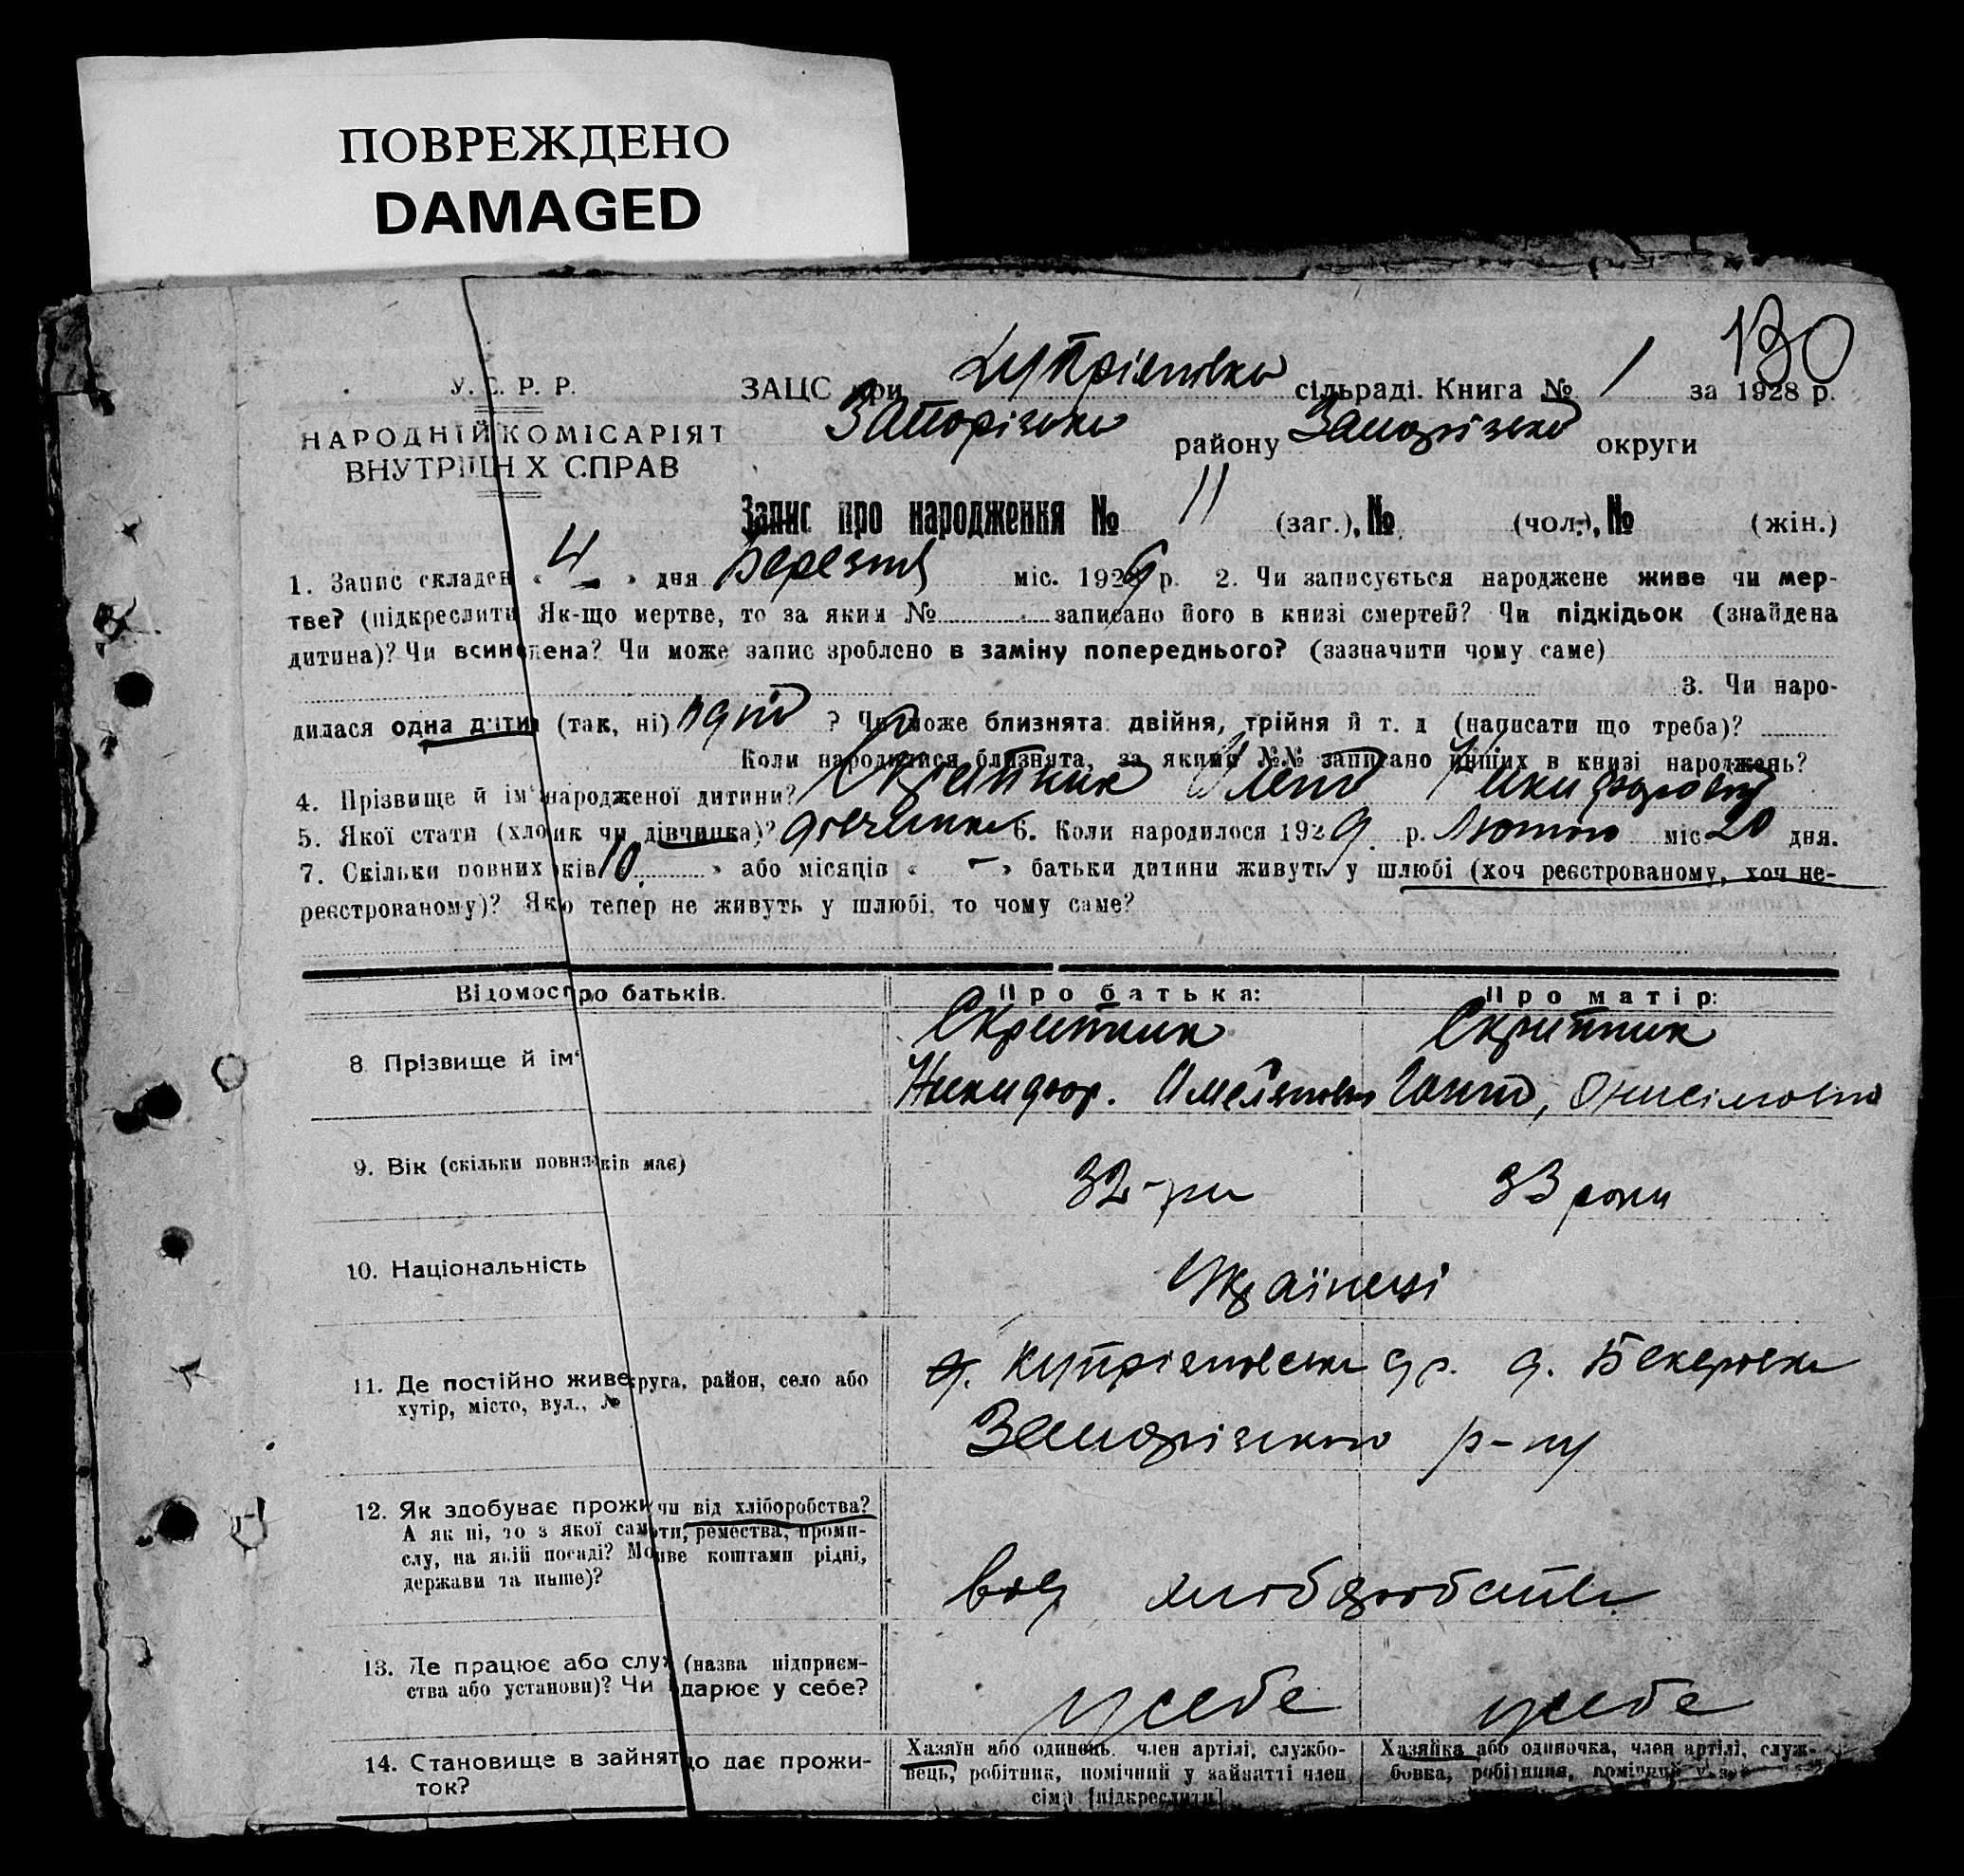 ПОВРЕЖДЕНО
DAMAGED
130
У. С. Р. Р. ЗАЦС при сільраді. Книга № 1 за 1928 р.
НАРОДНІЙ КОМІСАРІЯТ Запорізько району Запорізько округи
ВНУТРІШН Х СПРАВ
Запис про народження № 11 (заг.), № (чол.), № (жін.)
1. Запис складен « 4 » дня Березня міс. 1929 р. 2. Чи записується народжене живе чи мер-
тве? (підкреслити Як-що мертве, то за яким № записано його в книзі смертей? Чи підкідьок (знайдена
дитина)? Чи всиновлена? Чи може запис зроблено в заміну попереднього? (зазначити чому саме)
3. Чи наро-
дилася одна дитин (так, ні) ? Чи може близнята двійня, трійня й т. д (написати що треба)?
Коли народилися близнята, за якими №№ записано инших в книзі народжень?
4. Прізвище й ім' народженої дитини? Скрипник
5. Якої стати (хлопик чи дівчинка)? дівчинка 6. Коли народилося 1929 р. Лютого міс. 20 дня.
7. Скільки повних років 10 » або місяців « – » батьки дитини живуть у шлюбі (хоч реєстрованому, хоч не-
реєстрованому)? Як о тепер не живуть у шлюбі, то чому саме?
Відомос про батьків. Про батька: Про матір:
Скрипник Скрипник
8 Прізвище й ім' Никифор. Омелянов Ганна, Онисімовна
9. Вік (скільки повних ків має) 32-ри 33 роки
10. Національність Українці
11. Де постійно живе руга, район, село або
хутір, місто, вул., №
Запорізького р-ну
12. Як здобуває прожи чи від хліборобства?
А як ні, то з якої сам оти, ремества, проми-
слу, на якій посаді? Мо иве коштами рідні,
держави та инше)?
від хлібороб
13. Де працює або слу (назва підприєм-
ства або установи)? Чи дарює у себе?
усебе усебе
14. Становище в зайнят що дає прожи-
ток?
Хазяїн або одинець, член артілі, службо-
вець, робітник, помічний у зайнятті член
сімї [підкреслити]
Хазяйка або одиночка, член артілі, служ-
бовка, робітниця, помічний у з